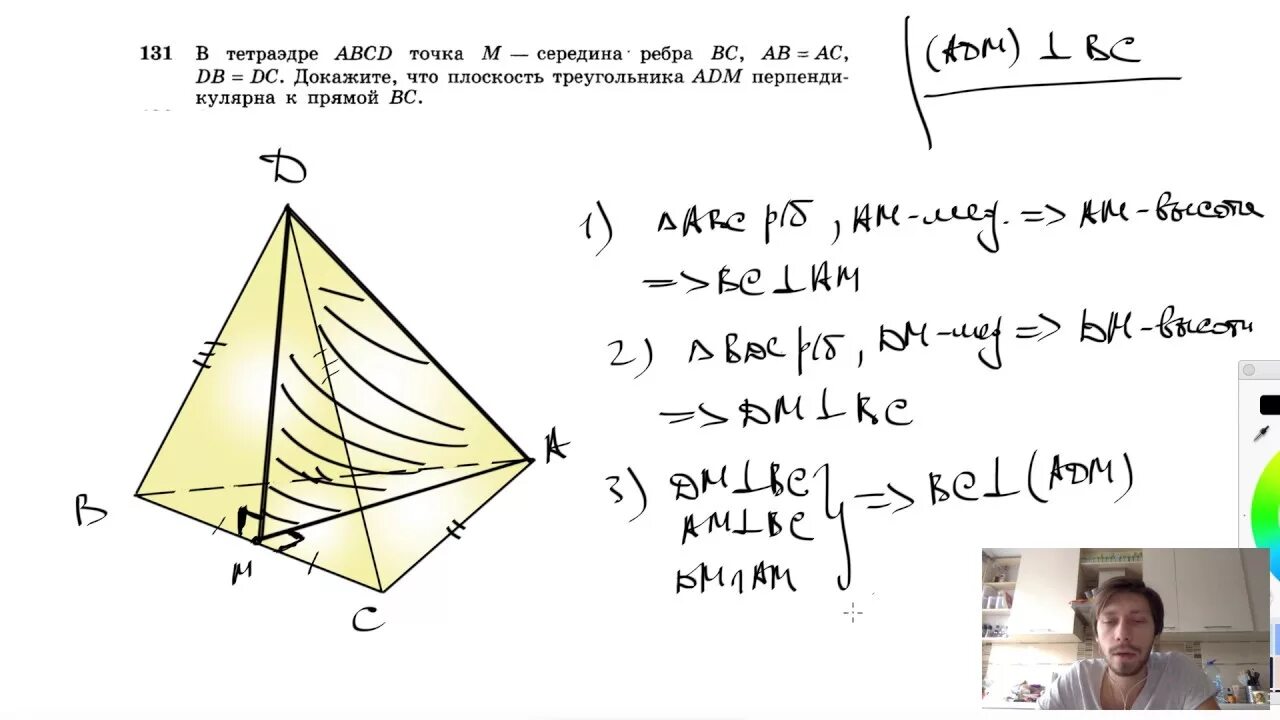 131 В тетраэдре ABCD точка M — середина ребра BC, AB = AC,
DB = DC. Докажите, что плоскость треугольника ADM перпенди-
кулярна к прямой BC.
(ADM) ⊥ BC
D
B
M
C
A
1) △ABC р/б, AM-мед. => AM-высота
=> BC ⊥ AM
2) △BDC р/б, DM-мед => DM-высота
=> DM ⊥ BC
3) DM ⊥ BC } => BC ⊥ (ADM)
AM ⊥ BC
DM ∩ AM